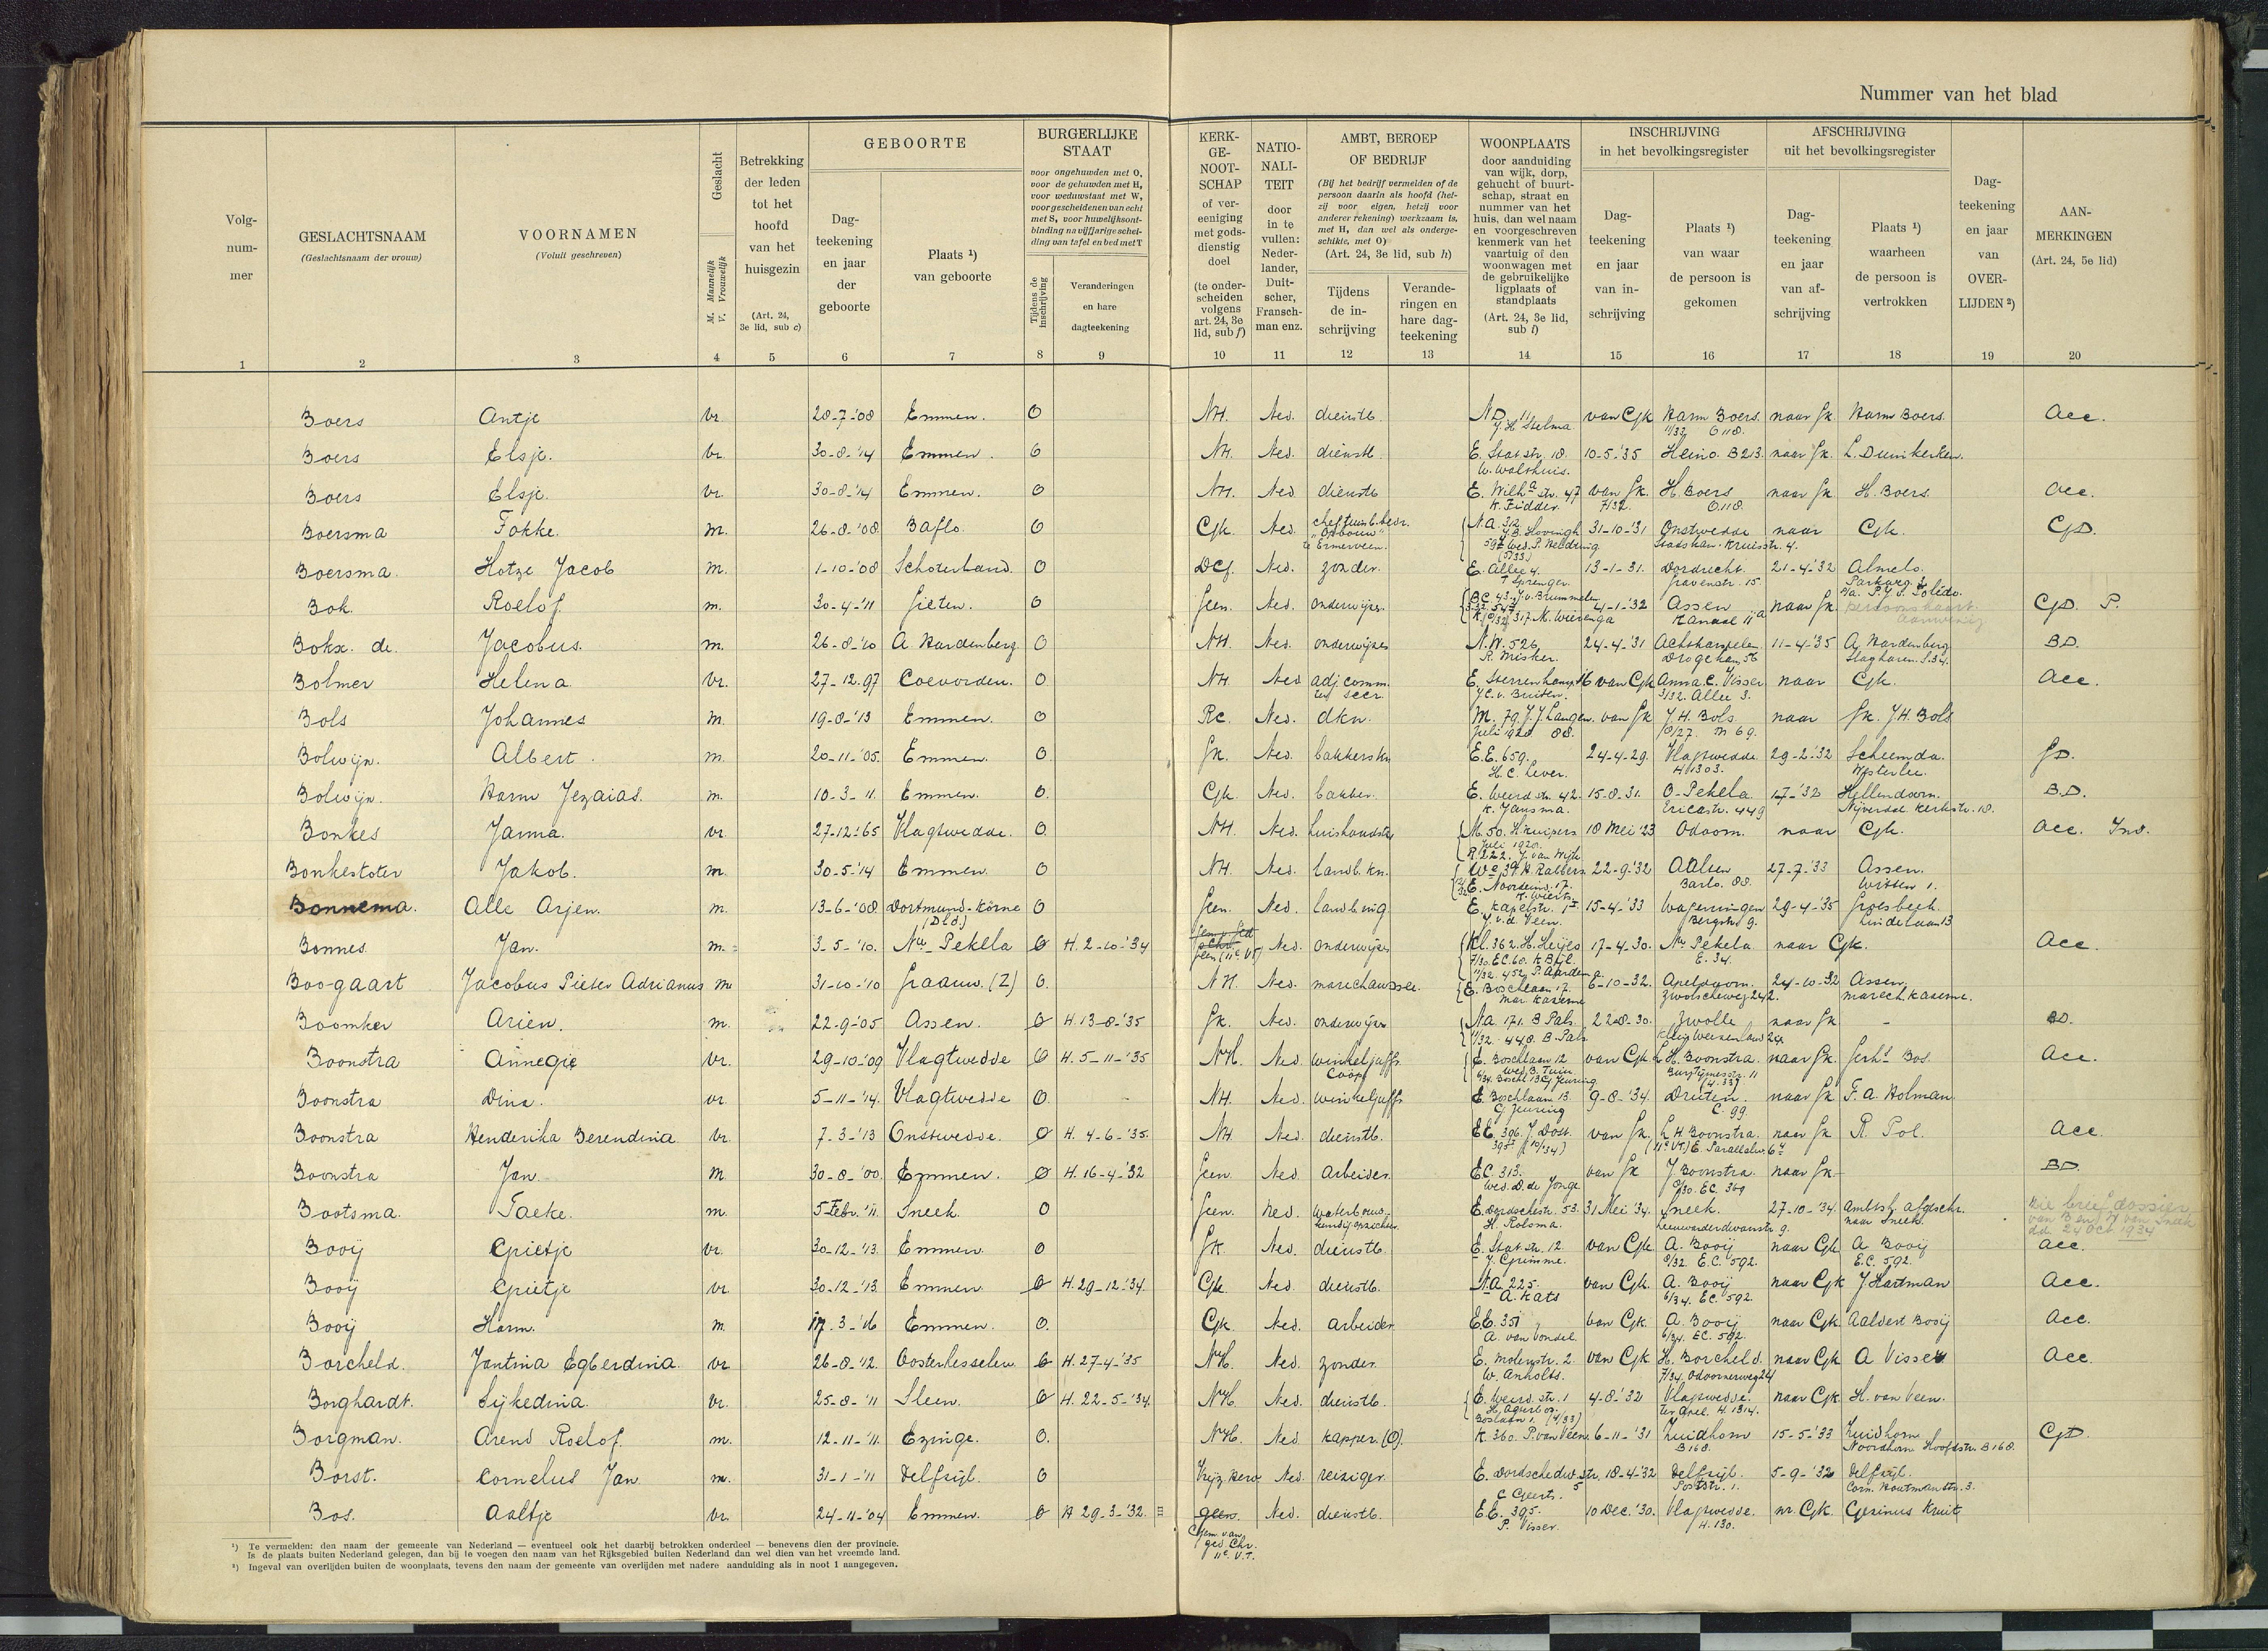 Nummer van het blad
Volgnummer
GESLACHTSNAAM
(Geslachtsnaam der vrouw)
VOORNAMEN
(Voluit geschreven)
Geslacht
M. Mannelijk
V. Vrouwelijk
Betrekking der leden tot het hoofd van het huisgezin
(Art. 24, 3e lid, sub c)
GEBOORTE
Dagteekening en jaar der geboorte
Plaats ¹) van geboorte
BURGERLIJKE STAAT
voor ongehuwden met O, voor de gehuwden met H, voor weduwstaat met W, voor gescheidenen van echt met S, voor huwelijksontbinding na vijfjarige scheiding van tafel en bed met T
Tijdens de inschrijving
Veranderingen en hare dagteekening
KERKGENOOTSCHAP of vereeniging met godsdienstig doel
(te onderscheiden volgens art. 24, 3e lid, sub f)
NATIONALITEIT door in te vullen: Nederlander, Duitscher, Franschman enz.
AMBT, BEROEP OF BEDRIJF
(Bij het bedrijf vermelden of de persoon daarin als hoofd (hetzij voor eigen, hetzij voor anderer rekening) werkzaam is, met H, dan wel als ondergeschikte, met O)
(Art. 24, 3e lid, sub h)
Tijdens de inschrijving
Veranderingen en hare dagteekening
WOONPLAATS
door aanduiding van wijk, dorp, gehucht of buurtschap, straat en nummer van het huis, dan wel naam en voorgeschreven kenmerk van het vaartuig of den woonwagen met de gebruikelijke ligplaats of standplaats
(Art. 24, 3e lid, sub i)
INSCHRIJVING in het bevolkingsregister
Dagteekening en jaar van inschrijving
Plaats ¹) van waar de persoon is gekomen
AFSCHRIJVING uit het bevolkingsregister
Dagteekening en jaar van afschrijving
Plaats ¹) waarheen de persoon is vertrokken
Dagteekening en jaar van OVERLIJDEN ²)
AANMERKINGEN
(Art. 24, 5e lid)
1 2 3 4 5 6 7 8 9 10 11 12 13 14 15 16 17 18 19 20
Boers Antje vr. 28-7-'08 Emmen. O NH. Ned. dienstb. J.H. Stelma van Gk Harm Boers. 11/32 naar Gk. Harm Boers. acc.
Boers Elsje. vr. 30-8-'14 Emmen. O NH. Ned. dienstb. E. Stat.str. 18. W. Walthuis. 10-5-'35 Heino. B213. naar Gk. L. Duinkerken.
Boers Elsje. vr. 30-8-'14 Emmen. O NH. Ned dienstb E. Wilhª str. 47 K. Fidder van Gk. 7/32. H. Boers naar Gk H. Boers. acc.
Boersma Fokke. m. 26-8-'08. Baflo. O Gk. Ned. "Opbouw" te Ermerveen. 31-10-'31 Onstwedde Stadskan. Kruisstr. 4. naar Gk.
Boersma. Hotze Jacob m. 1-10-'08 Schoterland. O Ned. zonder. E. Allee 4. T Sprenger. 13-1-31. Dordrecht. Gravenstr. 15 21-4-'32 Almelo.
Bok. Roelof. m. 30-4-'11 Gieten. O Geen. Ned. onderwijzer. J. v. Brummelen 317. M. Wierenga 4-1-'32 Assen Kanaal 11ª naar Gk. persoonskaart aanwezig P.
Bokx. de. Jacobus. m. 26-8-'10 A. Hardenberg O NH. Ned. onderwijzer N.W. 526. R. Misker. 24-4-'31 Achtkarspelen Drogeham 56 11-4-'35 A. Hardenberg Slagharen. B.D.
Bolmer Helena. vr. 27-12.97 Coevorden. O NH. Ned adj. comm. ter secr. E. Sterrenkamp 16 J.C. v. Bruiten. van Gk Anna C. Visser 3/32. Allee 3. naar Gk. acc.
Bols Johannes m. 19-8-'13 Emmen. O Rc. Ned. dkn. M. 79. J.J. Langen. Juli 1928 van Gk J.H. Bols. M 69. naar Gk. J.H. Bols
Bolwijn. Albert. m. 20-11-'05. Emmen. O Gk. Ned. bakkerskn E.E. 659. H.C. Lever. 24-4-29. Vlagtwedde H1303. 29-2-'32 Scheemda. Westerlee.
Bolwijn. Harm Jezaias. m. 10-3-11. Emmen. O. Gk. Ned. bakker. E. Weerdstr. 42. K. Jansma. 15-8-31. O-Pekela Ericastr. 449 Hellendoorn. Nijverdal Kerkstr. 18. B.D.
Bonkes Janna. vr. 27-12-'65 Vlagtwedde. O. NH. Ned. huishoudster M. 50. H. Kuipers Juli 1920. R. 222. J. van Wijk 18 Mei '23 Odoorn. naar Gk. acc. Inv.
Bonkestoter Jakob. m. 30-5-'14 Emmen. O NH. Ned. landb. kn. E. Noordeind. 17. 22-9-'32 Aalten Barlo. 27-7-'33 Assen. Witten 1.
Bonnema. Alle Arjen. m. 13-6-'08. Dortmund-Körne (Dld) O Geen. Ned. E. Kapelstr. J. v.d. Veen. 15-4-'33 Wageningen Bergstr. 9. 29-4-'35 Groesbeek. Lindelaan 13
Bonnes. Jan. m. 3-5-'10. Nwe Pekela O H. 2-10-'34 Ned. onderwijzer Kl. 362. H. Heijes K Bijl. 11/32. 452 P. Aardema 17-4-30. Nwe Pekela E. 34. naar Gk. acc.
Boogaart Jacobus Pieter Adrianus m 31-10-'10 Graauw. (Z) O. NH. Ned. marechaussee. E. Boschlaan 17. mar. kazerne 6-10-32. Apeldoorn. Zwolscheweg 242. 24-10-32 Assen. marech. kazerne.
Boomker Arien. m. 22-9-'05 Assen. O H. 13-8-'35 Gk. Ned. onderwijzer Na. 171. B Pals. 11/32. 448. B. Pals 22-8-30. Zwolle naar Gk - BD.
Boonstra Annegie vr. 29-10-'09 Vlagtwedde O H. 5-11-'35 NH. Ned winkeljuffr. Coöp. E. Boschlaan 12 Wed. B. Tuin 6/34. Boschl. 13 G Jeuring van Gk L.H. Boonstra. naar Gk. Gerhᵗ Bos. acc.
Boonstra Dina. vr. 5-11-'14. Vlagtwedde O. NH. Ned. winkeljuffr E. Boschlaan 13 G Jeuring 9-8-'34. Druten. C. 99. naar Gk F.A. Holman
Boonstra Henderika Berendina vr. 7-3-'13 Onstwedde. O H. 4-6-'35. NH. Ned. dienstb. E.C. 396. J. Dost. 395 (10/34) van Gk. L H Boonstra. naar Gk R. Pol. acc.
Boonstra Jan. m. 30-8-'00. Emmen. O H. 16-4-'32 Geen. Ned. arbeider. E.C. 313. Wed. D. de Jonge van Gk J. Boonstra. EC. 369 naar Gk. BD.
Bootsma. Taeke. m. 5 Febr. '11. Sneek. O Geen. Ned. waterbouwkundig opzichter. E. Dordschestr. 53. H. Rolsma. 31 Mei '34. Sneek. 27-10-'34. ambtsh. afgeschr. naar Sneek. zie brief dossier van B en W van Sneek dd. 24 Oct 1934
Booij Grietje vr. 30-12-'13. Emmen. O Gk. Ned. dienstb. E. Stat.str. 12. J. Grimme. van Gk. A. Booij 8/32 E.C. 592. naar Gk A Booij E.C. 592. acc.
Booij Grietje vr 30-12-'13. Emmen O H. 29-12-'34. Gk. Ned. dienstb. Na 225. A. Kats van Gk. A. Booij 6/34. EC. 592. naar Gk J Hartman acc.
Booij Harm. m. 3-'16 Emmen. O. Gk. Ned. arbeider E.E. 351 A. van Vondel. van Gk. A. Booij 6/34. EC. 592. naar Gk Aaldert Booij acc.
Borcheld. Jantina Egberdina. vr 26-8-'12. Oosterhesselen. O H. 27-4-'35 NH. Ned. zonder. E. Molenstr. 2. W. Anholts. van Gk. H. Borcheld. 7/34. Odoornerweg 24 naar Gk A Visser acc.
Borghardt. Sijkedina. vr. 25-8-'11 Sleen. O H. 22-5-'34. NH. Ned. dienstb. E. Weerd. str. 1 Boslaan 1. (4/33) 4-8-'32 Vlagtwedde. ter Apel. H. 1314. naar Gk. H. van Veen.
Borgman. Arend Roelof. m. 12-11-'11. Ezinge. O. NH. Ned kapper. (O). K. 360. P. van Veen. 6-11-'31 Zuidhorn B168. 15-5-'33 Zuidhorn Noordhorn Hoofdstr. B 168.
Borst. Cornelus Jan. m. 31-1-'11 Delfzijl. O Ned. reiziger. E. Dordschedw.str. 5 C Geerts. 18-4-'32 Delfzijl. Poststr. 1. 5-9-'32 Delfzijl. Corn. Houtmanstr. 3.
Bos. Aaltje vr. 24-11-'04 Emmen. O H 29-3-'32. geen. Gem. van ged Chr. 11e V.T. Ned. dienstb. E.E. 395. P. Visser. 10 Dec. '30. Vlagtwedde. H. 130. nr. Gk. Gerinus Kruit
¹) Te vermelden: den naam der gemeente van Nederland — eventueel ook het daarbij betrokken onderdeel — benevens dien der provincie.
Is de plaats buiten Nederland gelegen, dan bij te voegen den naam van het Rijksgebied buiten Nederland dan wel dien van het vreemde land.
²) Ingeval van overlijden buiten de woonplaats, tevens den naam der gemeente van overlijden met nadere aanduiding als in noot 1 aangegeven.